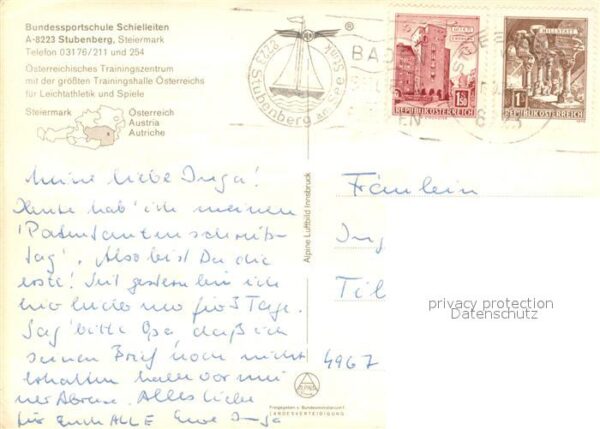 Bundessportschule Schielleiten
A-8223 Stubenberg, Steiermark
Telefon 03176/211 und 254
Österreichisches Trainingszentrum
mit der größten Trainingshalle Österreichs
für Leichtathletik und Spiele
Steiermark
Österreich
Austria
Autriche
8223
Stubenberg am See
Stmk
®
BAD
REPUBLIK ÖSTERREICH
MILLSTATT
REPUBLIK ÖSTERREICH
Meine liebe Inga!
Heute hab' ich meinen
'Patentantenschreib-
tag'. Also bist Du die
erste! Seit gestern bin ich
hier für 3 Tage.
Sag' bitte Opa daß ich
seinen Brief noch nicht
erhalten habe vor mei
ner Abreise. Alles Liebe
für Euch ALLE Eure Inga
Alpine Luftbild Innsbruck
Freigegeben v. Bundesministerium f.
LANDESVERTEIDIGUNG
Fräulein
Ing
Til
4967
privacy protection
Datenschutz